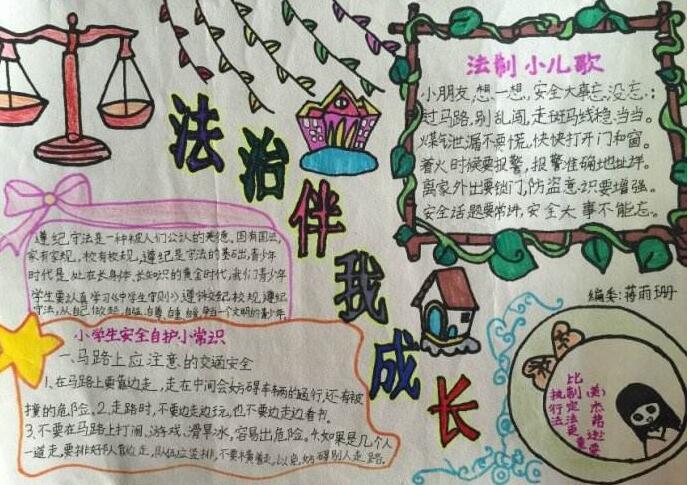 法治伴我成长
法制小儿歌
小朋友,想一想,安全大事忘没忘:
过马路,别乱闯,走斑马线稳当当。
煤气泄漏不要慌,快快打开门和窗。
着火时候要报警,报警准确地址详。
离家外出要锁门,防盗意识要增强。
安全话题要常讲,安全大事不能忘。
编委:蒋雨珊
遵纪守法是一种被人们公认的美德。国有国法,
家有家规,校有校规,遵纪是守法的基础,青少年
时代是处在长身体、长知识的黄金时代,我们青少年
学生要认真学习《中学生守则》遵守校纪校规,遵纪
守法,从自己做起,自强、自尊、自重、争当一个文明的青少年。
小学生安全自护小常识
一、马路上应注意的交通安全
1.在马路上要靠边走,走在中间会妨碍车辆的通行,还有被
撞的危险。2.走路时,不要边走边玩,也不要边走边看书。
3.不要在马路上打闹、游戏、滑旱冰,容易出危险。4.如果是几个人
一道走,要排好队靠边走,队伍应竖排,不要横着走,以免妨碍别人走路。
执行法
比制定法更重要
(美)杰弗逊